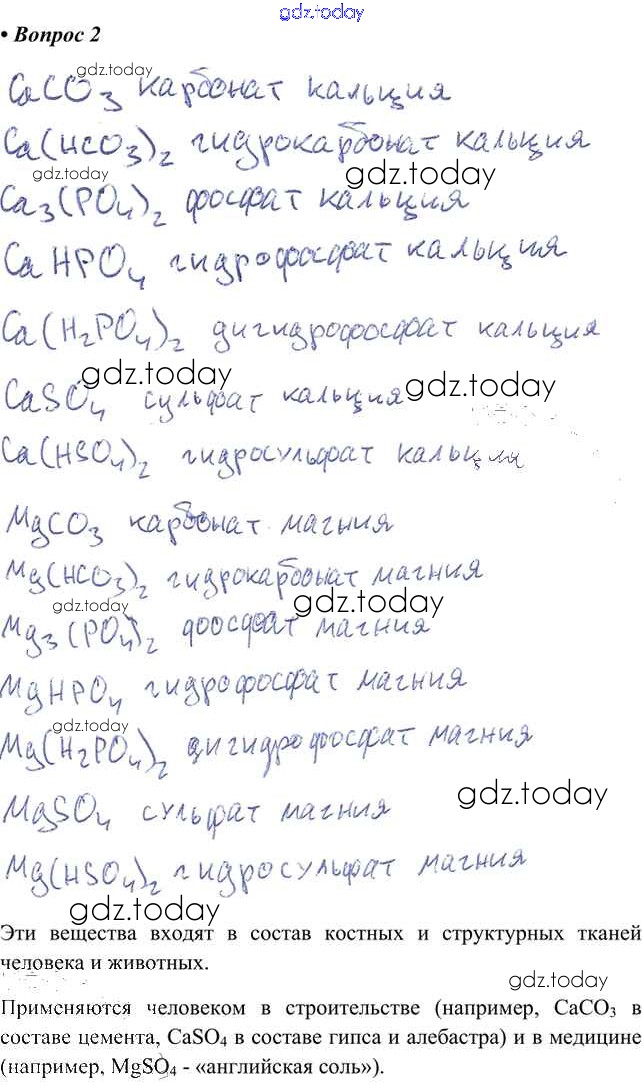 gdz.today
• Вопрос 2
gdz.today
CaCO3 карбонат кальция
Ca(HCO3)2 гидрокарбонат кальция
gdz.today
gdz.today
Ca3(PO4)2 фосфат кальция
CaHPO4 гидрофосфат кальция
Ca(H2PO4)2 дигидрофосфат кальция
gdz.today
gdz.today
CaSO4 сульфат кальция
Ca(HSO4)2 гидросульфат кальция
MgCO3 карбонат магния
Mg(HCO3)2 гидрокарбонат магния
gdz.today
gdz.today
Mg3(PO4)2 фосфат магния
MgHPO4 гидрофосфат магния
gdz.today
Mg(H2PO4)2 дигидрофосфат магния
gdz.today
MgSO4 сульфат магния
Mg(HSO4)2 гидросульфат магния
gdz.today
Эти вещества входят в состав костных и структурных тканей
человека и животных.
gdz.today
Применяются человеком в строительстве (например, CaCO3 в
составе цемента, CaSO4 в составе гипса и алебастра) и в медицине
(например, MgSO4 - «английская соль»).